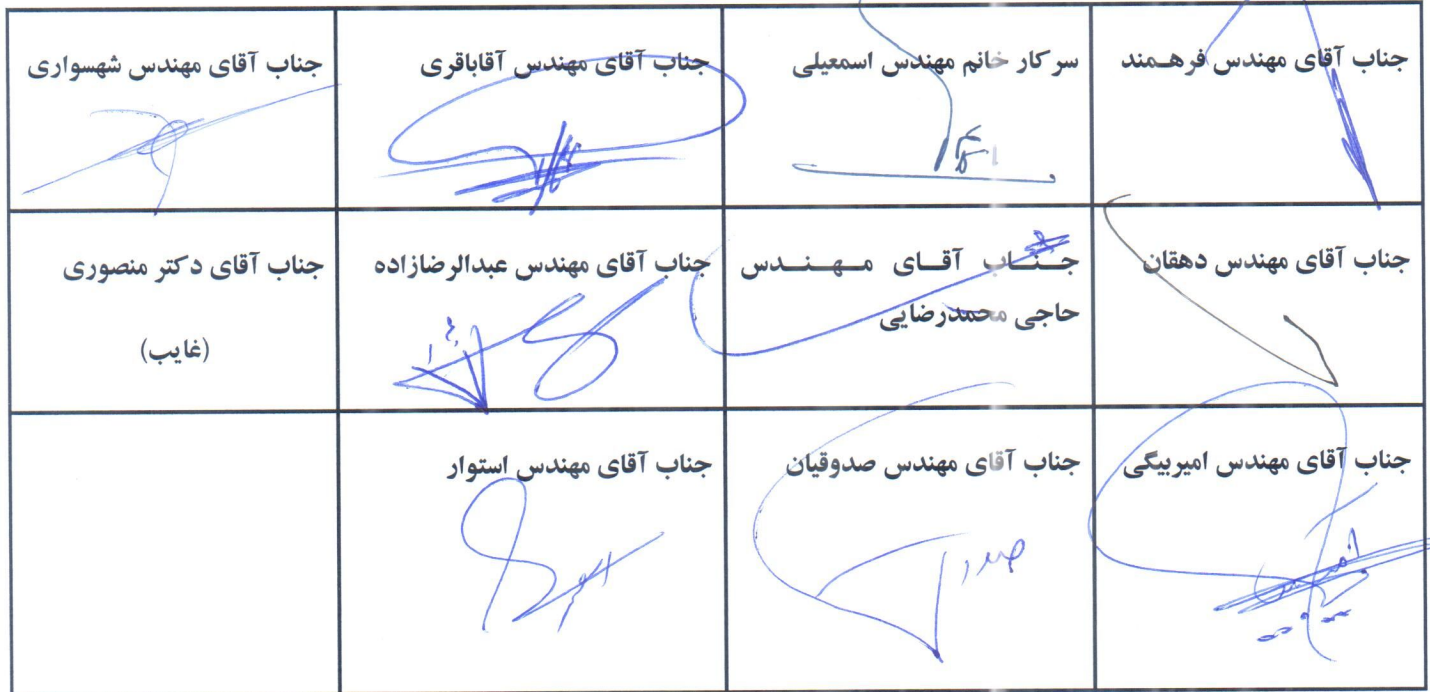 جناب آقای مهندس فرهـمند
سرکار خانم مهندس اسمعیلی
جناب آقای مهندس آقاباقری
جناب آقای مهندس شهسواری
جناب آقای مهندس دهقان
جـنـاب آقـای مـهـنـدس
حاجی محمدرضایی
جناب آقای مهندس عبدالرضازاده
جناب آقای دکتر منصوری
(غایب)
جناب آقای مهندس امیربیگی
جناب آقای مهندس صدوقیان
جناب آقای مهندس استوار